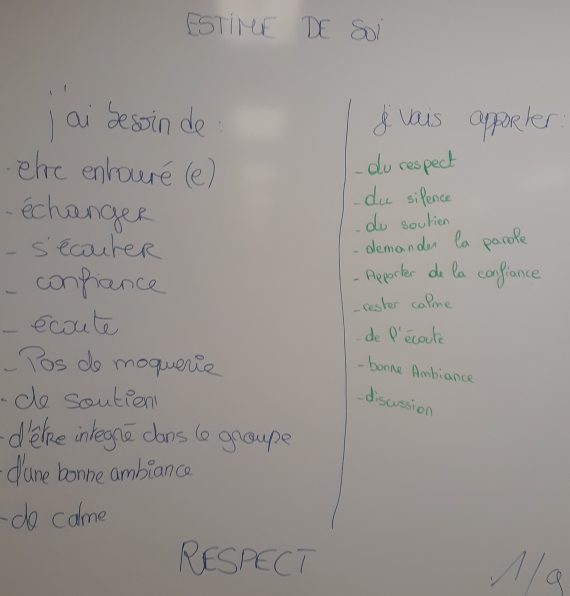 ESTIME DE SOI
j'ai besoin de :
- etre entouré (e)
- échanger
- s'écouter
- confiance
- écoute
- Pas de moquerie
- de soutien
- d'être integré dans le groupe
- d'une bonne ambiance
- de calme
je vais apporter :
- du respect
- du silence
- du soutien
- demander la parole
- Apporter de la confiance
- rester calme
- de l'écoute
- bonne Ambiance
- discussion
RESPECT
1/9